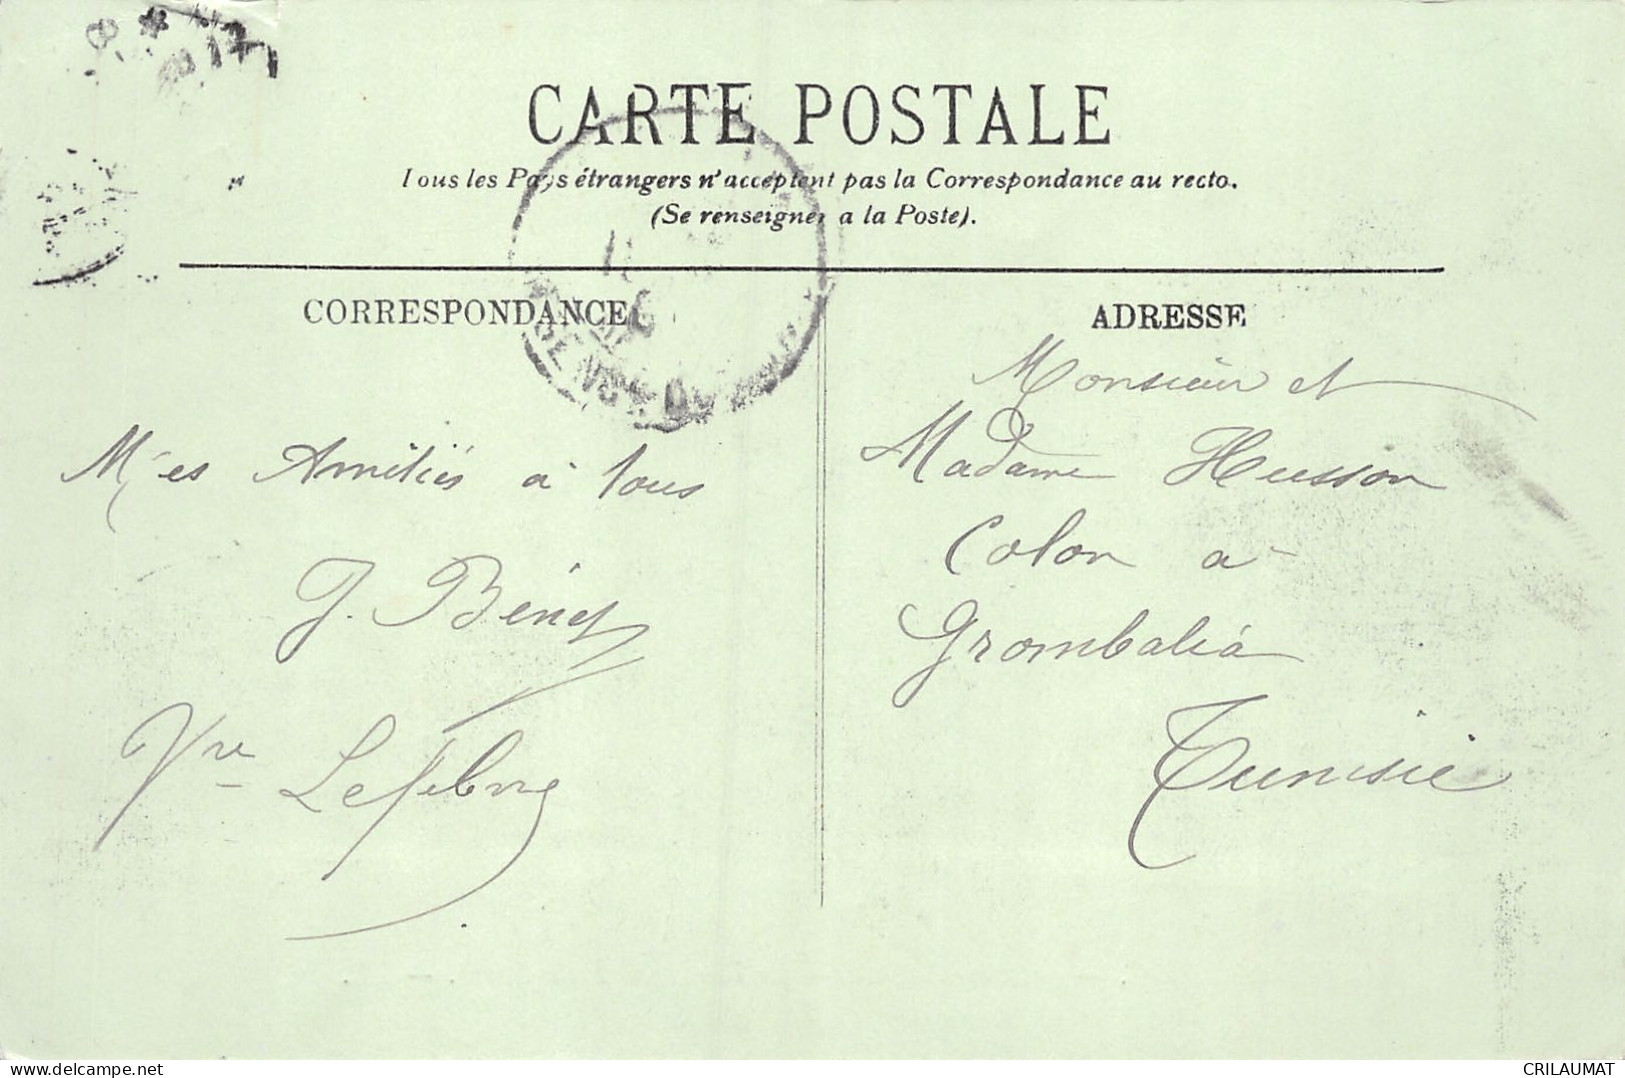 CARTE POSTALE
Tous les Pays étrangers n'acceptent pas la Correspondance au recto.
(Se renseigner a la Poste).
CORRESPONDANCE
Mes Amitiés à tous
J. Bénet
Vve Lefebvre
ADRESSE
Monsieur et
Madame Husson
Colon a
Grombalia
Tunisie
delcampe.net
CRILAUMAT